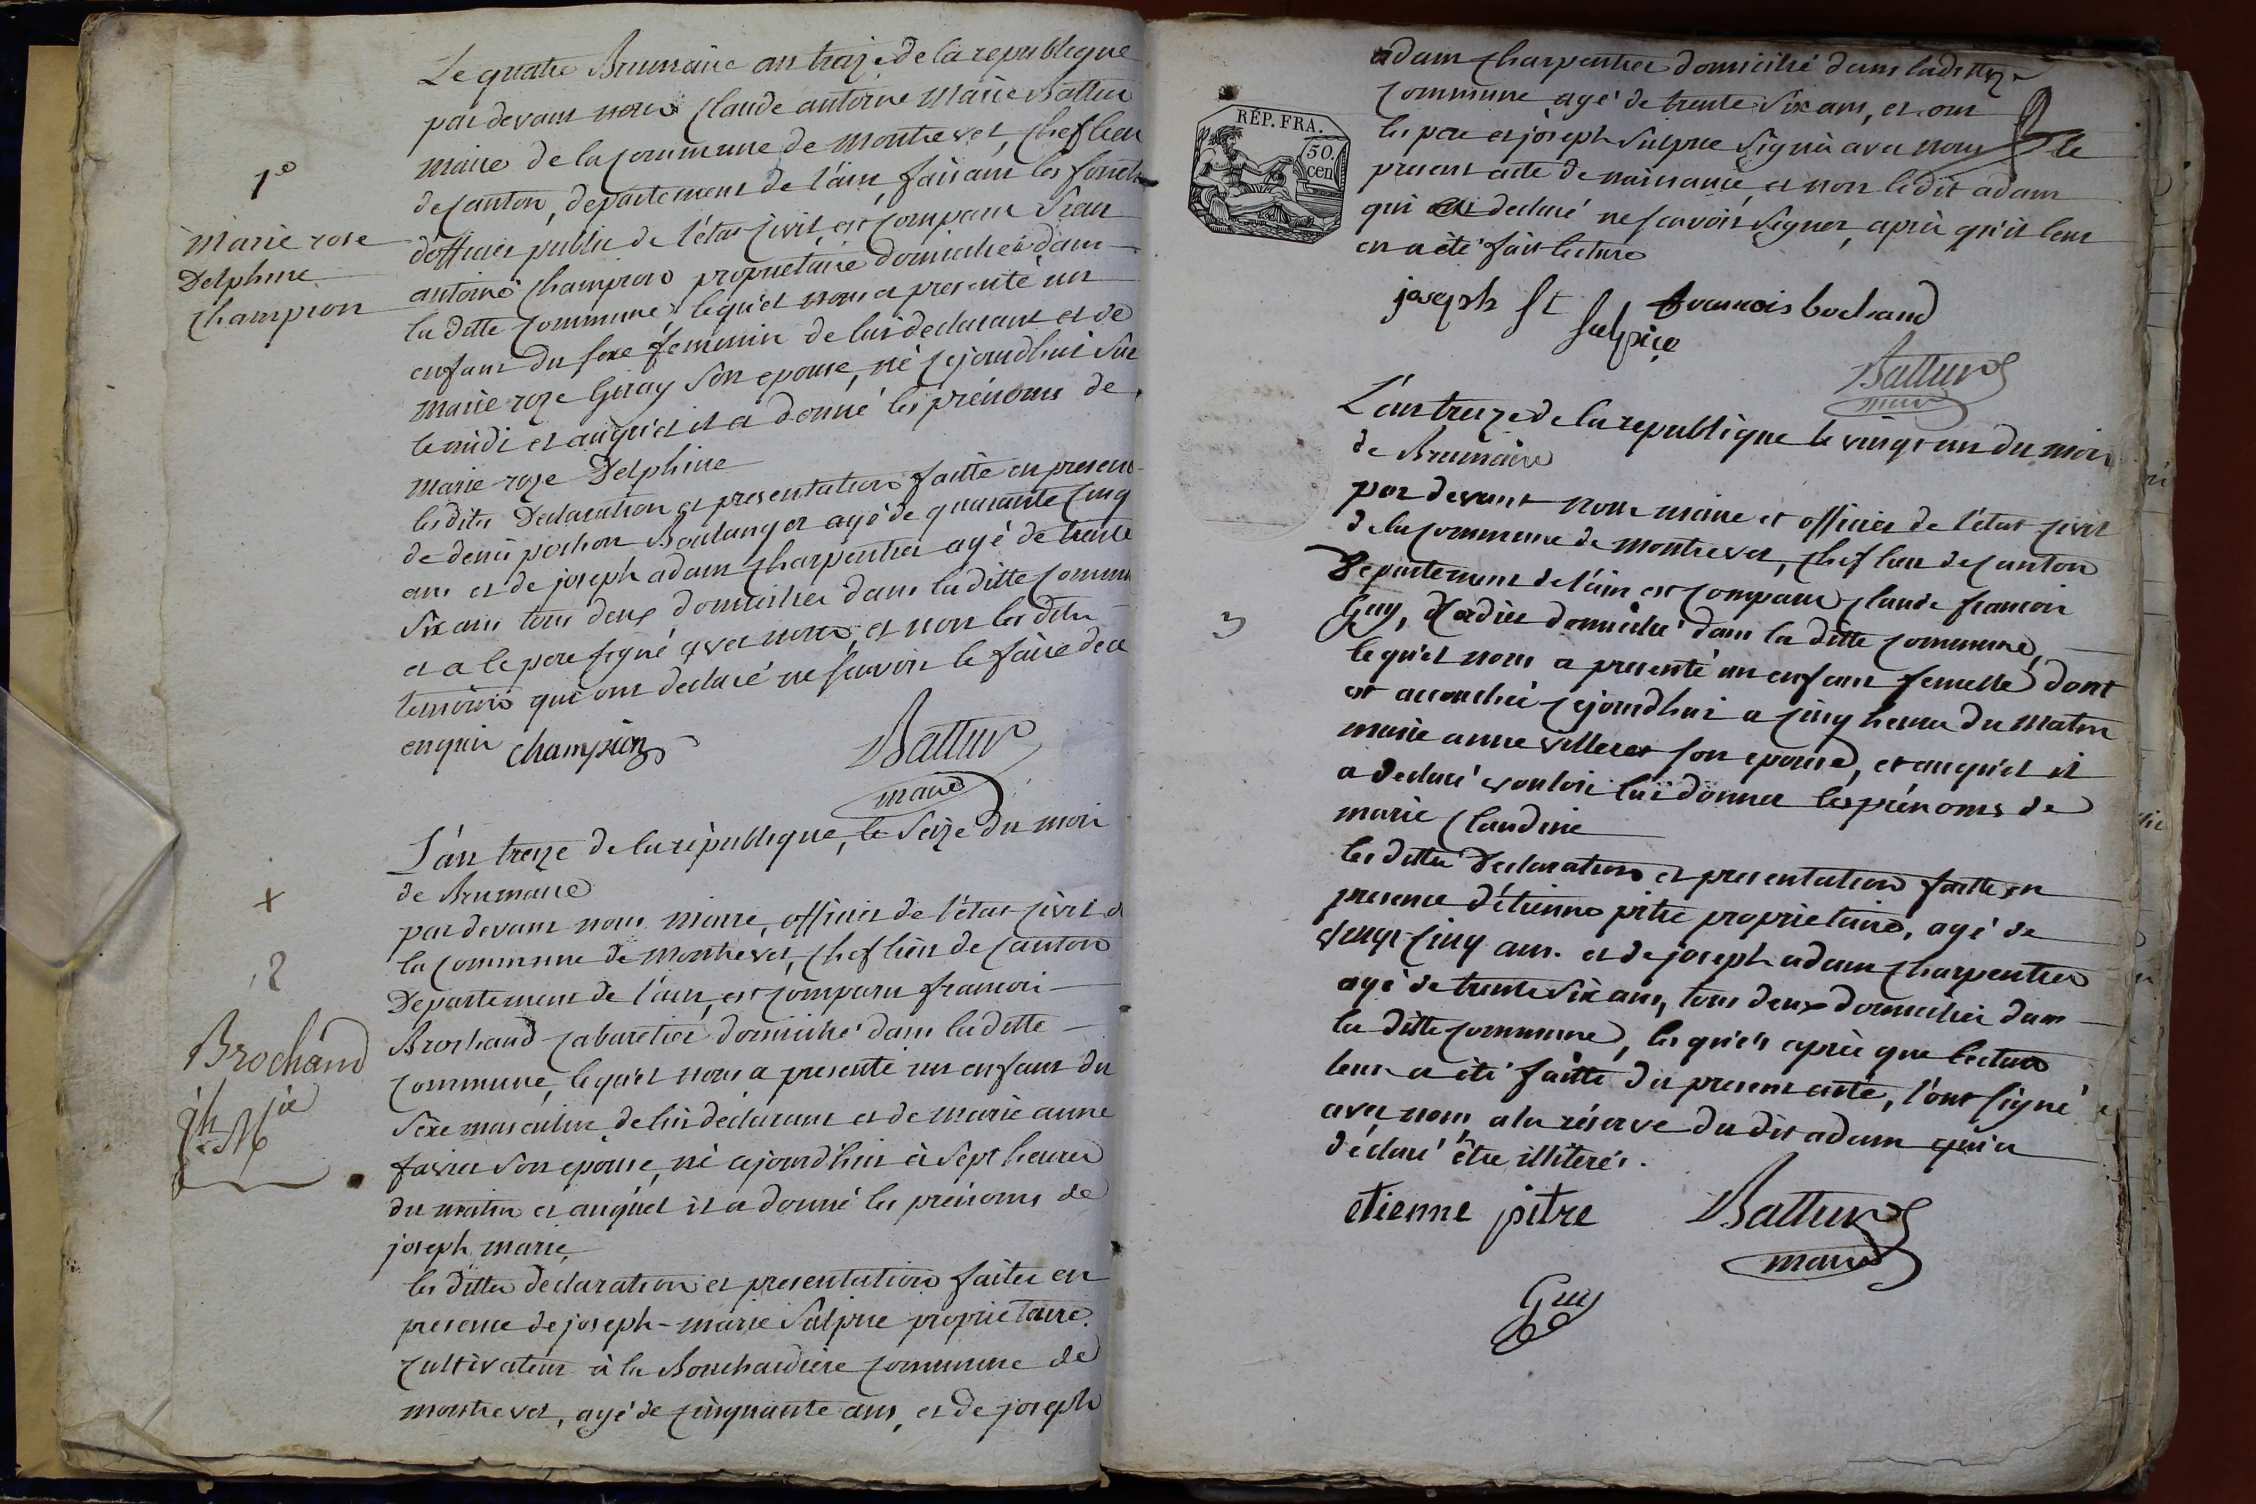 Le quatre Brumaire an traize de la republique
par devant nous Claude antoine Marie Battur
maire de la commune de montrevet, chef lieu
de canton, departement de l'ain, faisant les foncti
d'officier public de l'état civil, est comparu Jean
antoine Champion proprietaire domicilié dans
la ditte commune lequ'el nous a presenté un
enfant du sexe feminin de lui declarant et de
marie roze Geray son epouse, né cejourdhui sur
le midi et auqu'el il a donné les prénoms de
marie roze Delphine
les dites Declaration et presentation faitte en presence
de denis pochon Boulanger agé de quarante cinq
ans et de joseph adam charpentier agé de trente
six ans tous deux domiciliés dans la ditte commu
et a le pere signé avec nous, et non les dits
temoins qui ont declaré ne scavoir le faire de ce
enquis Champion
Battur
maire
1°
Marie rose
Delphine
Champion
L'an treize de la république, le Seize du mois
de Brumaire
par devant nous maire, officier de l'état civil de
la commune de montrevet, chef lieu de canton
Departement de l'ain, est comparu francois
Brochand cabaretier domicilié dans la ditte
commune, lequ'el nous a presenté un enfant du
sexe masculin de lui déclarant et de marie anne
favier son epouse, né cejourd'hui à sept heures
du matin et auquel il a donné les prénoms de
joseph marie
les dittes déclaration et presentation faites en
presence de joseph-marie Sulpice proprietaire
cultivateur à la Bouchardiere commune de
montrevet, agé de cinquante ans, et de joseph
+
2
Brochand
Jh Mie
adam charpentier domicilié dans laditte
commune agé de trente six ans, et ont
les pere et joseph Sulpice signé avec nous le
present acte de naissance, et non ledit adam
qui a declaré ne scavoir signer, après qu'il leur
en a été fait lecture
RÉP. FRA.
50.
cen
joseph St
Sulpice
francois bochand
Battur
maire
L'an treize de la republique le vingt un du mois
de Brumaire
par devant nous maire et officier de l'état civil
de la commune de montrevet, chef lieu de canton
Departement de l'ain est comparu claude francois
Guy, domicilié dans la ditte commune,
lequ'el nous a presenté un enfant femelle dont
est accouchée cejourdhui a cinq heures du matin
marie anne villeret son epouse, et auqu'el il
a declaré vouloir lui donner les prénoms de
marie Claudine
les dittes Declaration et presentation faitte en
presence d'étienne pitre proprietaire, agé de
vingt-cinq ans. et de joseph adam charpentier
agé de trente six ans, tous deux domiciliés dans
la ditte commune, lesqu'els après que lecture
leur a été faitte du present acte, l'ont signé
avec nous, a la réserve du dit adam qui a
déclaré être illiteré.
etienne pitre
Battur
maire
Guy
3